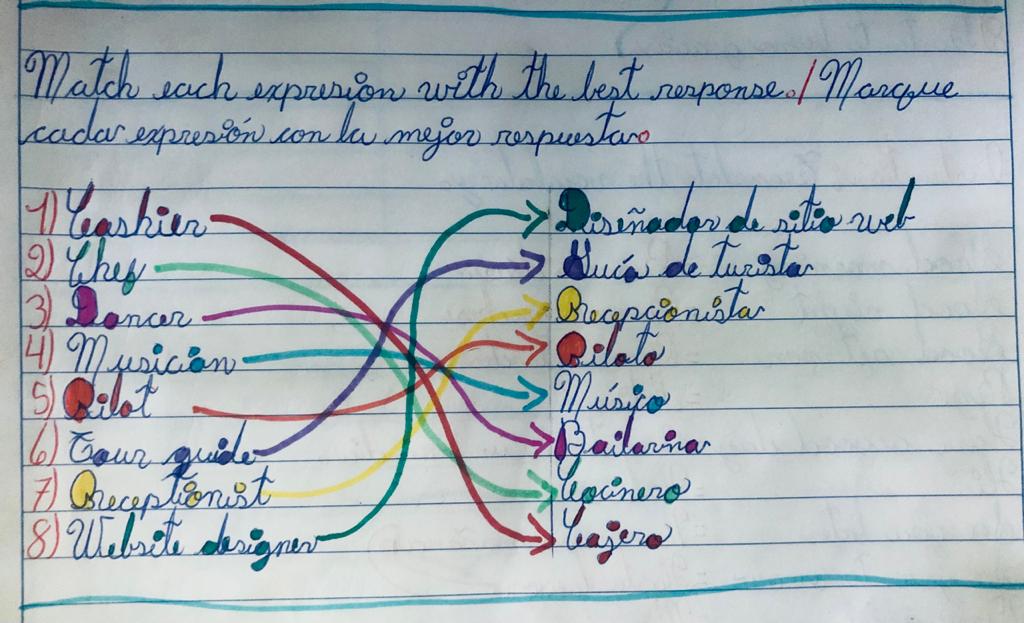 Match each expresion with the best response./Marque
cada expresión con la mejor respuesta.
1) Cashier Diseñador de sitio web
2) Chef Guía de turista
3) Dancer Recepcionista
4) Musician Piloto
5) Pilot Músico
6) Tour guide Bailarina
7) Receptionist Cocinero
8) Website designer Cajero